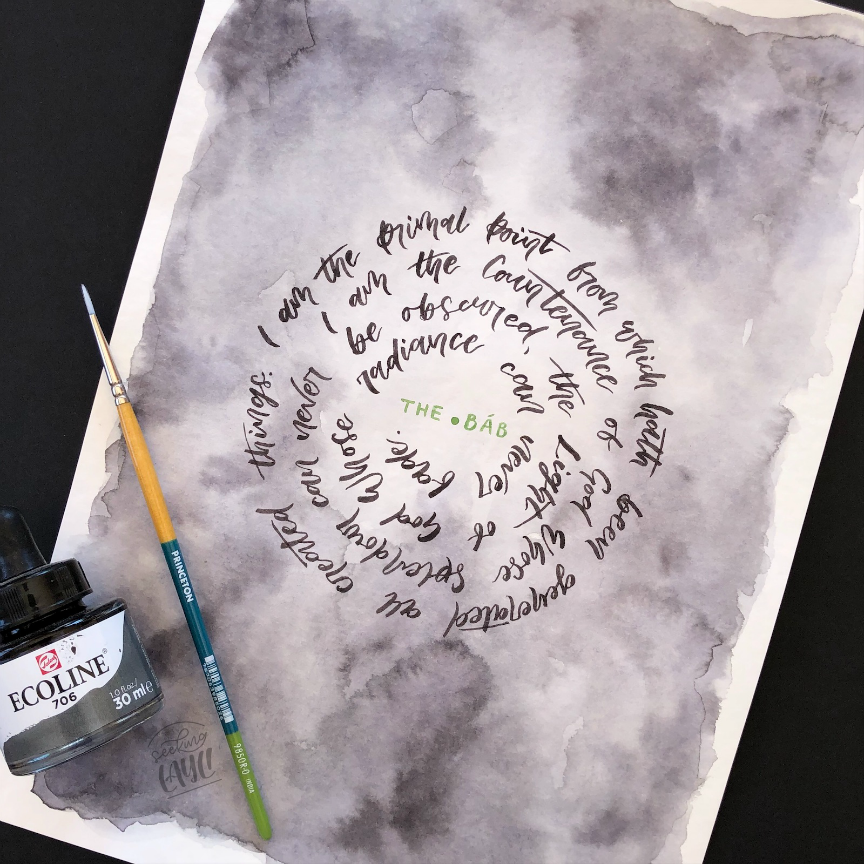 I am the primal point from which hath been generated all created things.
I am the Countenance of God Whose splendour can never
be obscured, the Light of God Whose
radiance can never fade.
THE • BÁB
PRINCETON
9850R-0 INDIA
Talens
ECOLINE®
706
1.0 fl.oz./
30 ml ℮
seeking
LAYLI